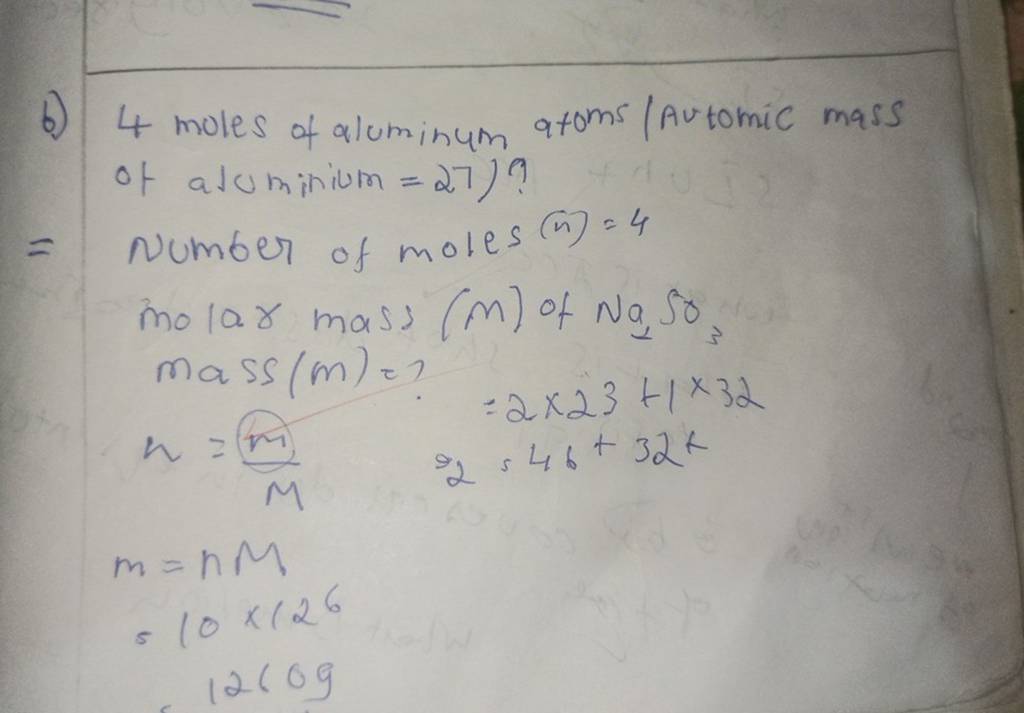 b) 4 moles of aluminum atoms (Automic mass
of aluminium = 27)?
= Number of moles (n) = 4
molar mass (M) of Na2SO3
mass (m) = ?
= 2 × 23 + 1 × 32
n = m/M
= 46 + 32 +
m = nM
= 10 × 126
= 1260g